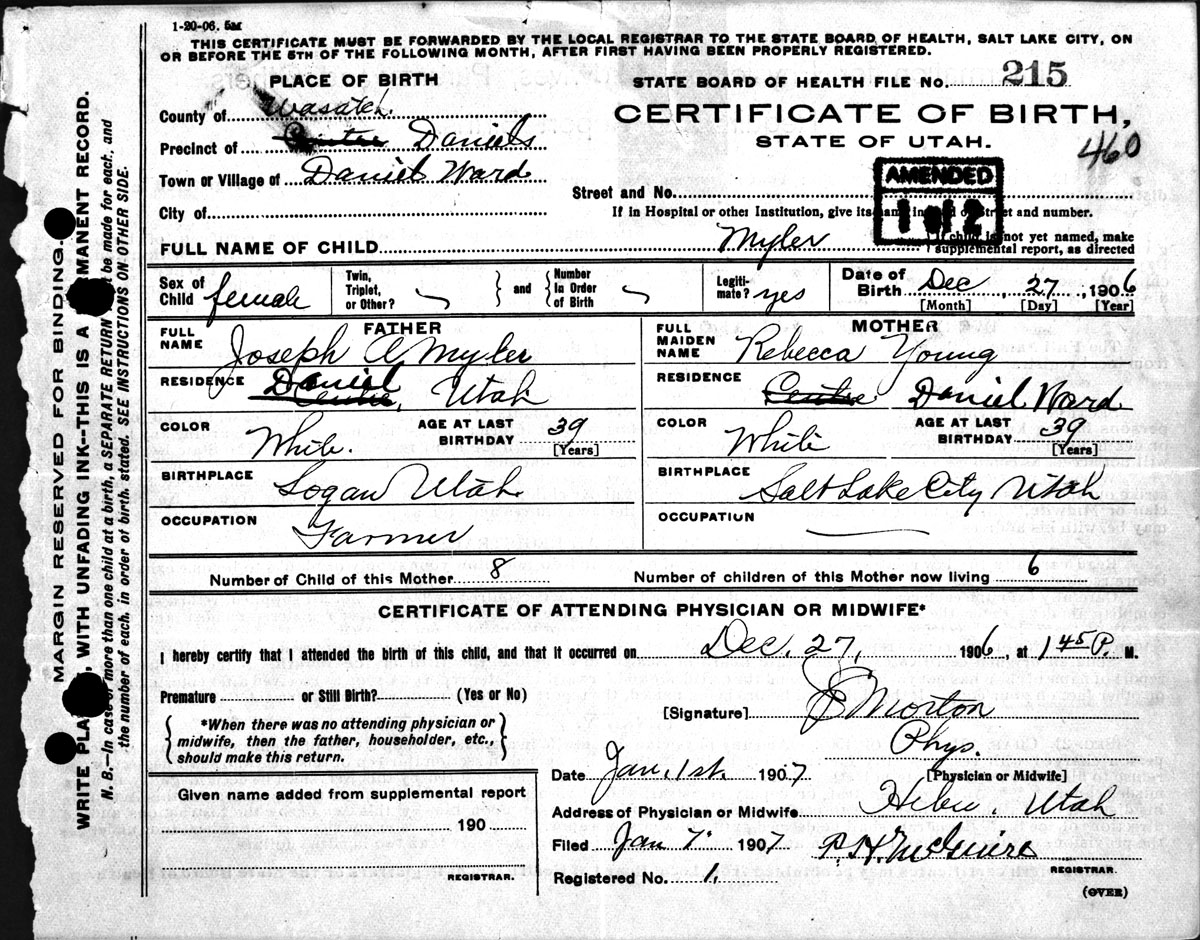 1-20-06. 5M
THIS CERTIFICATE MUST BE FORWARDED BY THE LOCAL REGISTRAR TO THE STATE BOARD OF HEALTH, SALT LAKE CITY, ON
OR BEFORE THE 5TH OF THE FOLLOWING MONTH, AFTER FIRST HAVING BEEN PROPERLY REGISTERED.
PLACE OF BIRTH
County of Wasatch
Precinct of Centre Daniels
Town or Village of Daniel Ward
City of
STATE BOARD OF HEALTH FILE No. 215
CERTIFICATE OF BIRTH,
STATE OF UTAH.
460
AMENDED
1 of 2
Street and No.
If in Hospital or other Institution, give its name instead of street and number.
FULL NAME OF CHILD Myler
If child is not yet named, make
supplemental report, as directed
Sex of Child female
Twin, Triplet, or Other?
and
Number In Order of Birth
Legiti-mate? yes
Date of Birth Dec 27, 1906
[Month] [Day] [Year]
FATHER
FULL NAME Joseph A Myler
RESIDENCE Daniel Centre, Utah
COLOR White.
AGE AT LAST BIRTHDAY 39
[Years]
BIRTHPLACE Logan Utah
OCCUPATION Farmer
MOTHER
FULL MAIDEN NAME Rebecca Young
RESIDENCE Centre Daniel Ward
COLOR White
AGE AT LAST BIRTHDAY 39
[Years]
BIRTHPLACE Salt Lake City Utah
OCCUPATION
Number of Child of this Mother 8
Number of children of this Mother now living 6
CERTIFICATE OF ATTENDING PHYSICIAN OR MIDWIFE*
I hereby certify that I attended the birth of this child, and that it occurred on Dec. 27, 1906, at 1 45 P. M.
Premature or Still Birth? (Yes or No)
*When there was no attending physician or
midwife, then the father, householder, etc.,
should make this return.
Given name added from supplemental report
190
REGISTRAR.
[Signature] Morton
Phys.
[Physician or Midwife]
Date Jan. 1st. 1907
Address of Physician or Midwife Heber, Utah
Filed Jan 7. 1907 McGuire
REGISTRAR.
Registered No. 1.
(OVER)
MARGIN RESERVED FOR BINDING.
WRITE PLAINLY, WITH UNFADING INK--THIS IS A PERMANENT RECORD.
N. B.--In case of more than one child at a birth, a SEPARATE RETURN must be made for each, and
the number of each, in order of birth, stated. SEE INSTRUCTIONS ON OTHER SIDE.